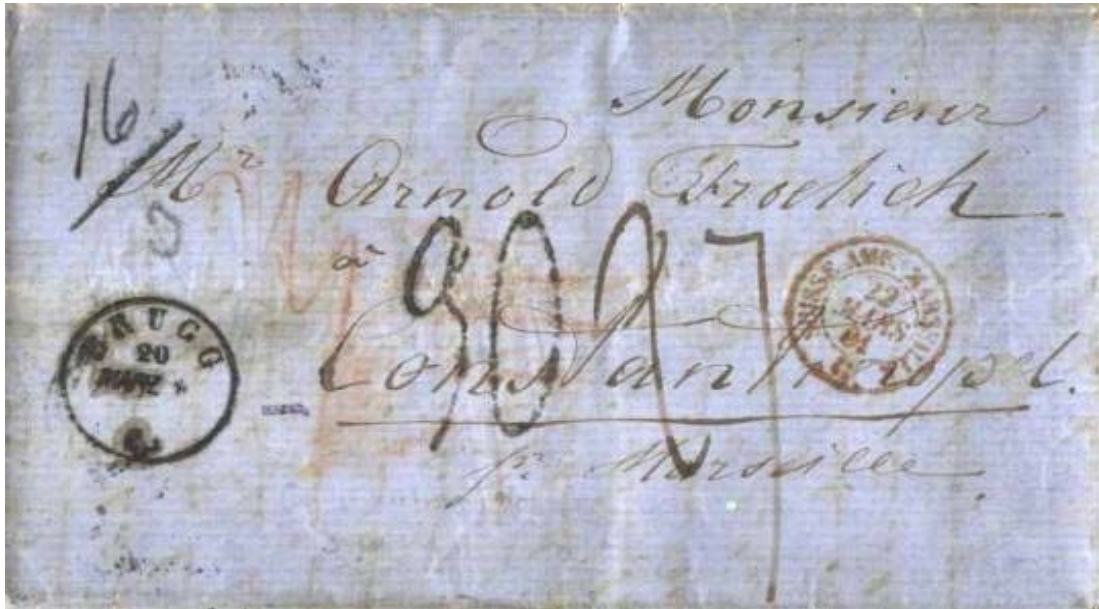 16
Monsieur
Mr Arnold Froelich
à
90
7
Constantinopel.
pr Marseille
BRUGG
20
MARZ
SUISSE AMB. MARSEILLE
22
MARS
61